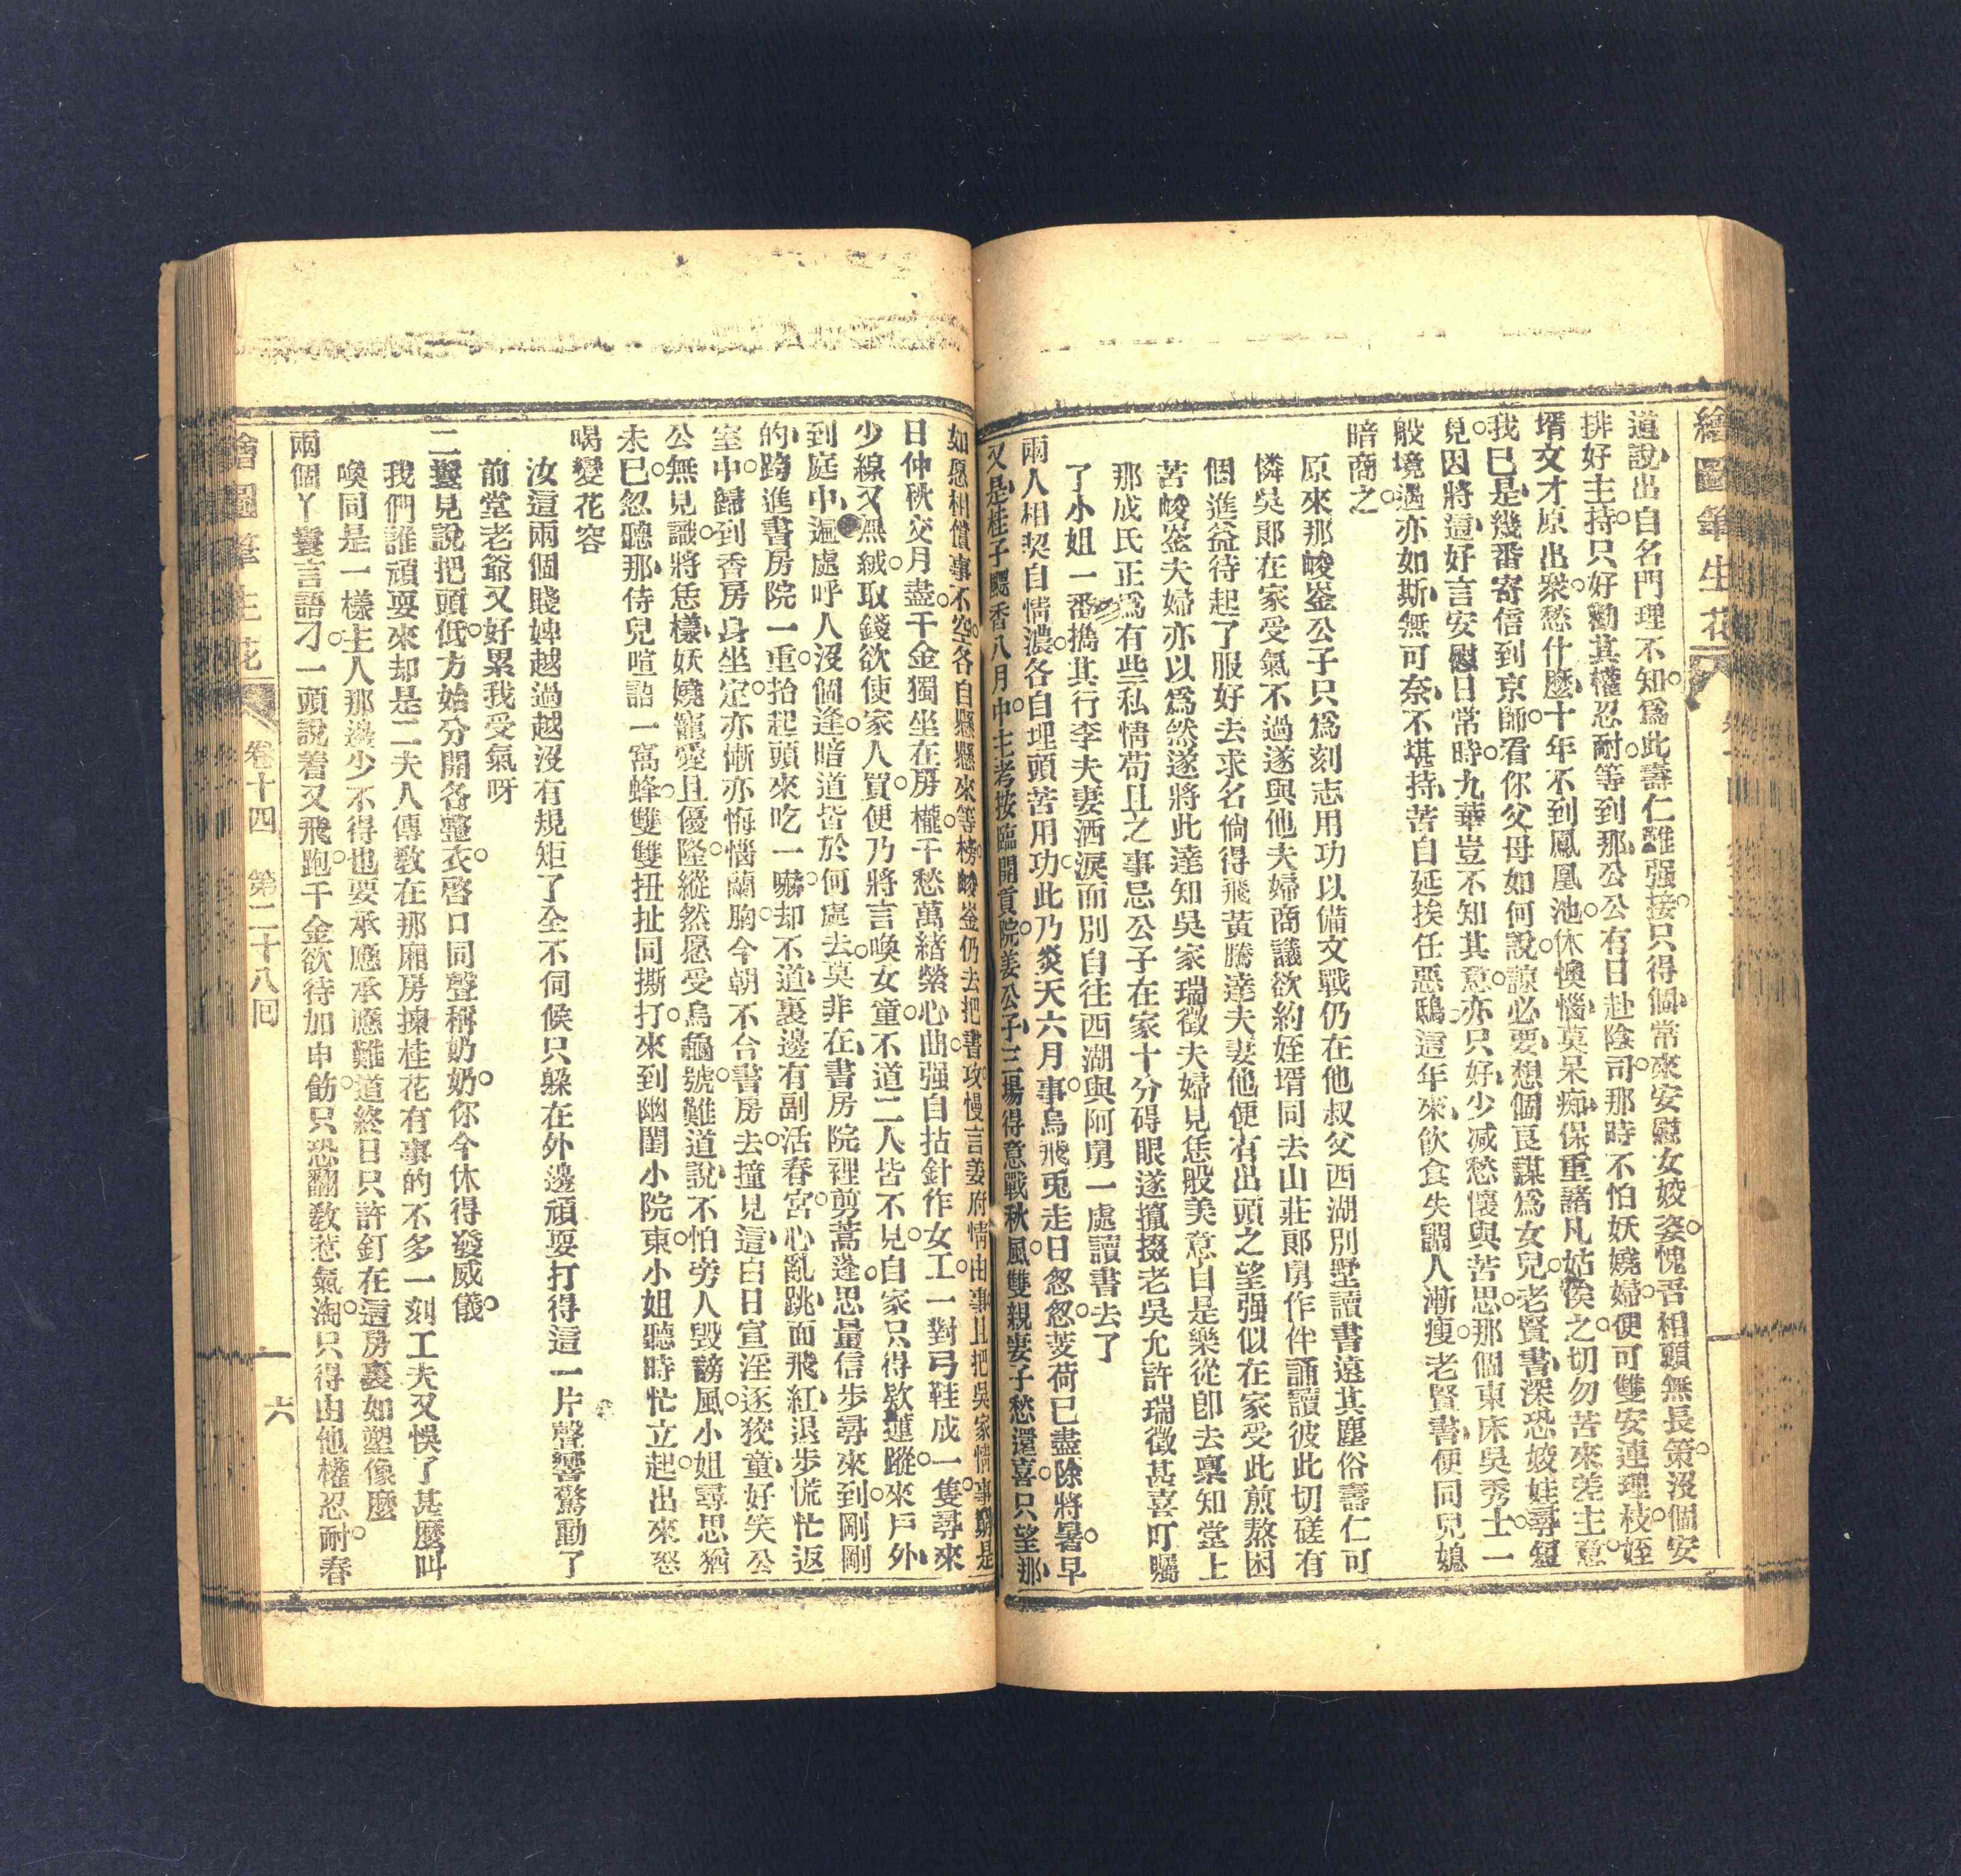 繪圖筆生花
道說出自名門理不知爲此壽仁難强接只得個常來安慰女姣姿愧吾相頭無長策沒個安
排好主持只好勸其權忍耐等到那公公有日赴陰司那時不怕妖嬈婦便可雙安連理枝姪
壻文才原出衆愁什麼十年不到鳳凰池休懊惱莫呆痴保重諸凡姑俟之切勿苦來差主意
我已是幾番寄信到京師看你父母如何說諒必要想個良謀爲女兒老賢書深恐姣娃尋短
見因將這好言安慰日常時九華豈不知其意亦只好少減愁懷與苦思那個東床吳秀士一
般境遇亦如斯無可奈不堪持苦自延挨任惡鴟這年來飲食失調人漸瘦老賢書便同兒媳
暗商之
原來那峻崟公子只爲刻志用功以備文戰仍在他叔父西湖別墅讀書遠其塵俗壽仁可
憐吳郎在家受氣不過遂與他夫婦商議欲約姪壻同去山莊郎舅作伴誦讀彼此切磋有
個進益待起了服好去求名倘得飛黃騰達夫妻他便有出頭之望强似在家受此煎熬困
苦峻崟夫婦亦以爲然遂將此達知吳家瑞徵夫婦見恁般美意自是樂從卽去稟知堂上
那成氏正爲有些私情苟且之事忌公子在家十分碍眼遂攛掇老吳允許瑞徵甚喜叮囑
了小姐一番擕其行李夫妻洒淚而別自往西湖與阿舅一處讀書去了
兩人相契自情濃各自埋頭苦用功此乃炎天六月事烏飛兎走日忽忽芰荷已盡除將暑早
又是桂子飃香八月中主考按臨開貢院姜公子三場得意戰秋風雙親妻子愁還喜只望那
如愿相償事不空各自懸懸來等榜峻崟仍去把書攻慢言姜府情由事且把吳家情事
日仲秋交月盡千金獨坐在房櫳千愁萬緖縈心曲强自拈針作女工一對弓鞋成一隻尋來
少線又無絨取錢欲使家人買便乃將言喚女童不道二人皆不見自家只得欵蓮蹤來戶外
到庭中遍處呼人沒個逢暗道皆於何處去莫非在書房院裡剪蒿蓬思量信步尋來到剛剛
的跨進書房院一重抬起頭來吃一嚇却不道裏邊有副活春宮心亂跳面飛紅退步慌忙返
室中歸到香房身坐定亦慚亦悔惱蘭胸今朝不合書房去撞見這白日宣淫逐狡童好笑公
公無見識將恁樣妖嬈寵愛且優隆縱然愿受烏龜號難道說不怕旁人毀謗風小姐尋思猶
未已忽聽那侍兒喧詬一窩蜂雙雙扭扯同撕打來到幽閨小院東小姐聽時忙立起出來怒
喝變花容
汝這兩個賤婢越過越沒有規矩了全不伺候只躲在外邊頑耍打得這一片聲響驚動了
前堂老爺又好累我受氣呀
二鬟見說把頭低方始分開各整衣啓口同聲稱奶奶你今休得發威儀
我們誰頑耍來却是二夫人傳教在那廂房揀桂花有事的不多一刻工夫又悞了甚麼叫
喚同是一樣主人那邊少不得也要承應承應難道終日只許釘在這房裏如塑像麼
兩個丫鬟言語刁一頭說着又飛跑千金欲待加申飭只恐翻教惹氣淘只得由他權忍耐春
繪圖筆生花 卷十四 第二十八回 六